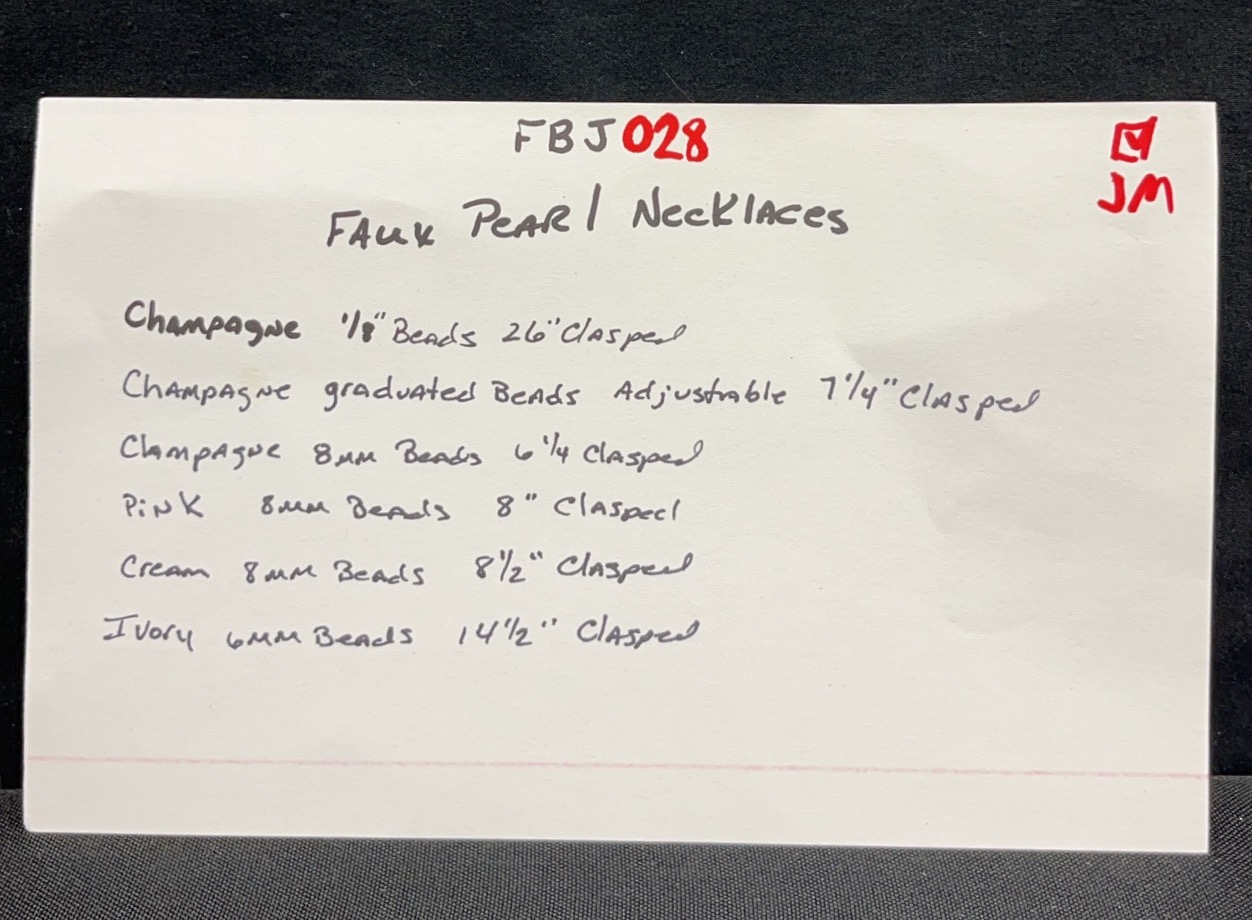 FBJ028
JM
Faux Pearl Necklaces
Champagne 1/8" Beads 26" Clasped
Champagne graduated Beads Adjustrable 7 1/4" Clasped
Clampagne 8mm Beads 6 1/4 Clasped
Pink 8mm Beads 8" Clasped
Cream 8mm Beads 8 1/2" Clasped
Ivory 6mm Beads 14 1/2" Clasped